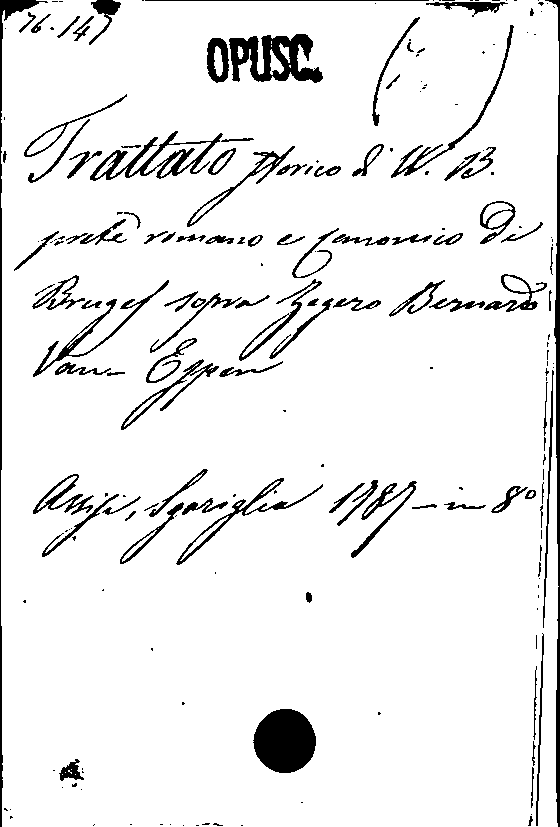 76.147
OPUSC.
Trattato storico di W. B.
prete romano e canonico di
Bruges sopra Zegero Bernardo
Van-Espen
Assisi, Sgariglia 1787 - in 8º